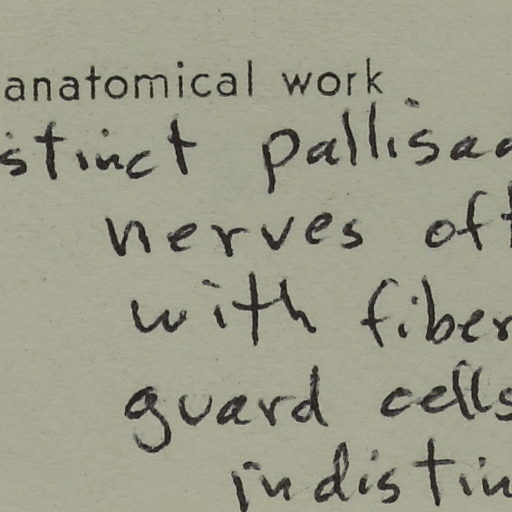 anatomical work
stinct pallisad
nerves oft
with fiber
guard cells
indistin